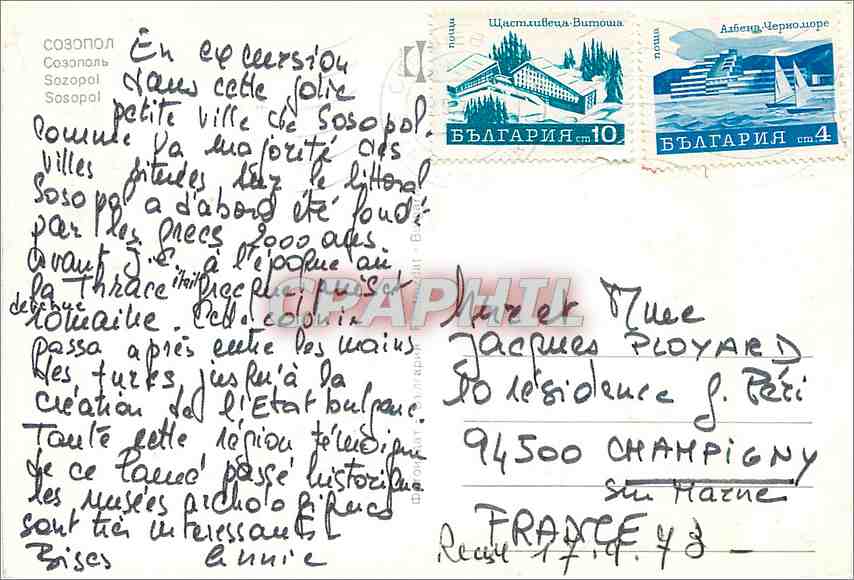 СОЗОПОЛ
Созополь
Sozopol
Sosopol
En excursion
dans cette jolie
petite ville de Sosopol.
Comme la majorité des
villes situées sur le littoral
Sosopol a d'abord été fondé
par les grecs 2000 ans
avant J.C. à l'époque où
la Thrace était grecque puis
devenue
romaine. Cette
passa après entre les mains
des turcs jusqu'à la
création de l'Etat bulgare.
Toute cette région témoigne
de ce passé historique
les musées archéologiques
sont très interessants.
Bises Annie
поща
Щастливеца-Витоша
БЪЛГАРИЯ ст 10
поща
Албена, Черноморе
БЪЛГАРИЯ ст. 4
CPAPHIL
Mr et Mme
Jacques PLOYARD
10 résidence G. Péri
94500 CHAMPIGNY
sur Marne
FRANCE
Reçue 17.9.73